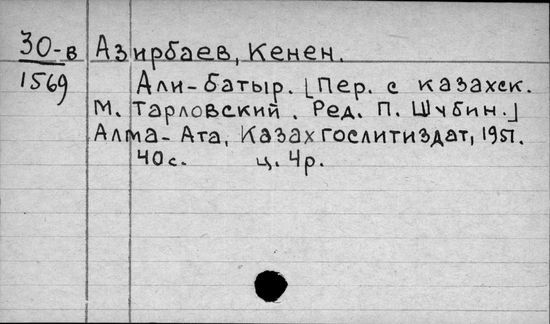 30-в Азирбаев, Кенен.
1569 Али-батыр. [Пер. с казахск.
М. Тарловский. Ред. П. Шубин.]
Алма-Ата, Казахгослитиздат, 1951.
40 с. ц. 4р.